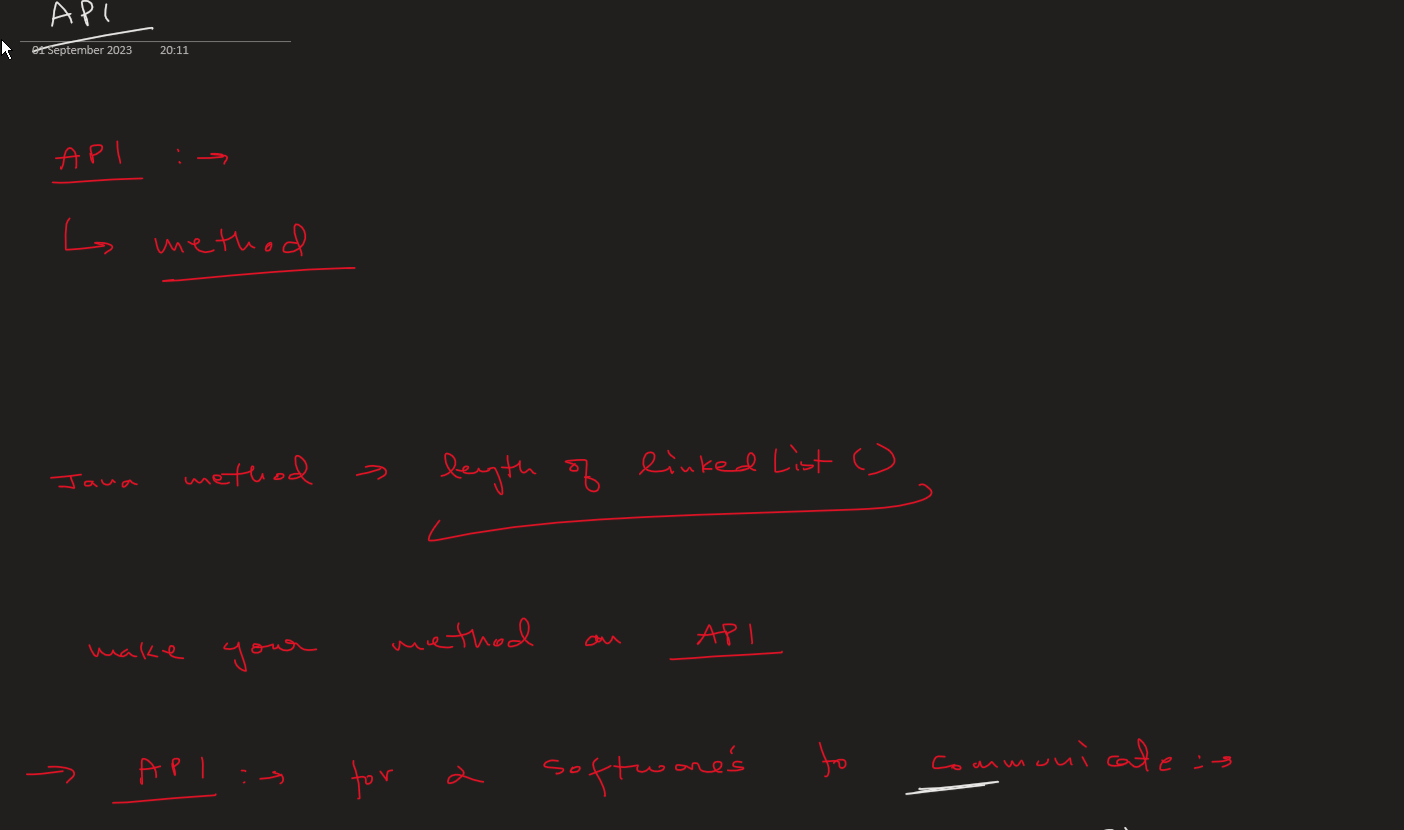 API
01 September 2023 20:11
API : →
↳ method
Java method → length of linkedList ()
make your method an API
→ API : → for 2 software's to communicate : →